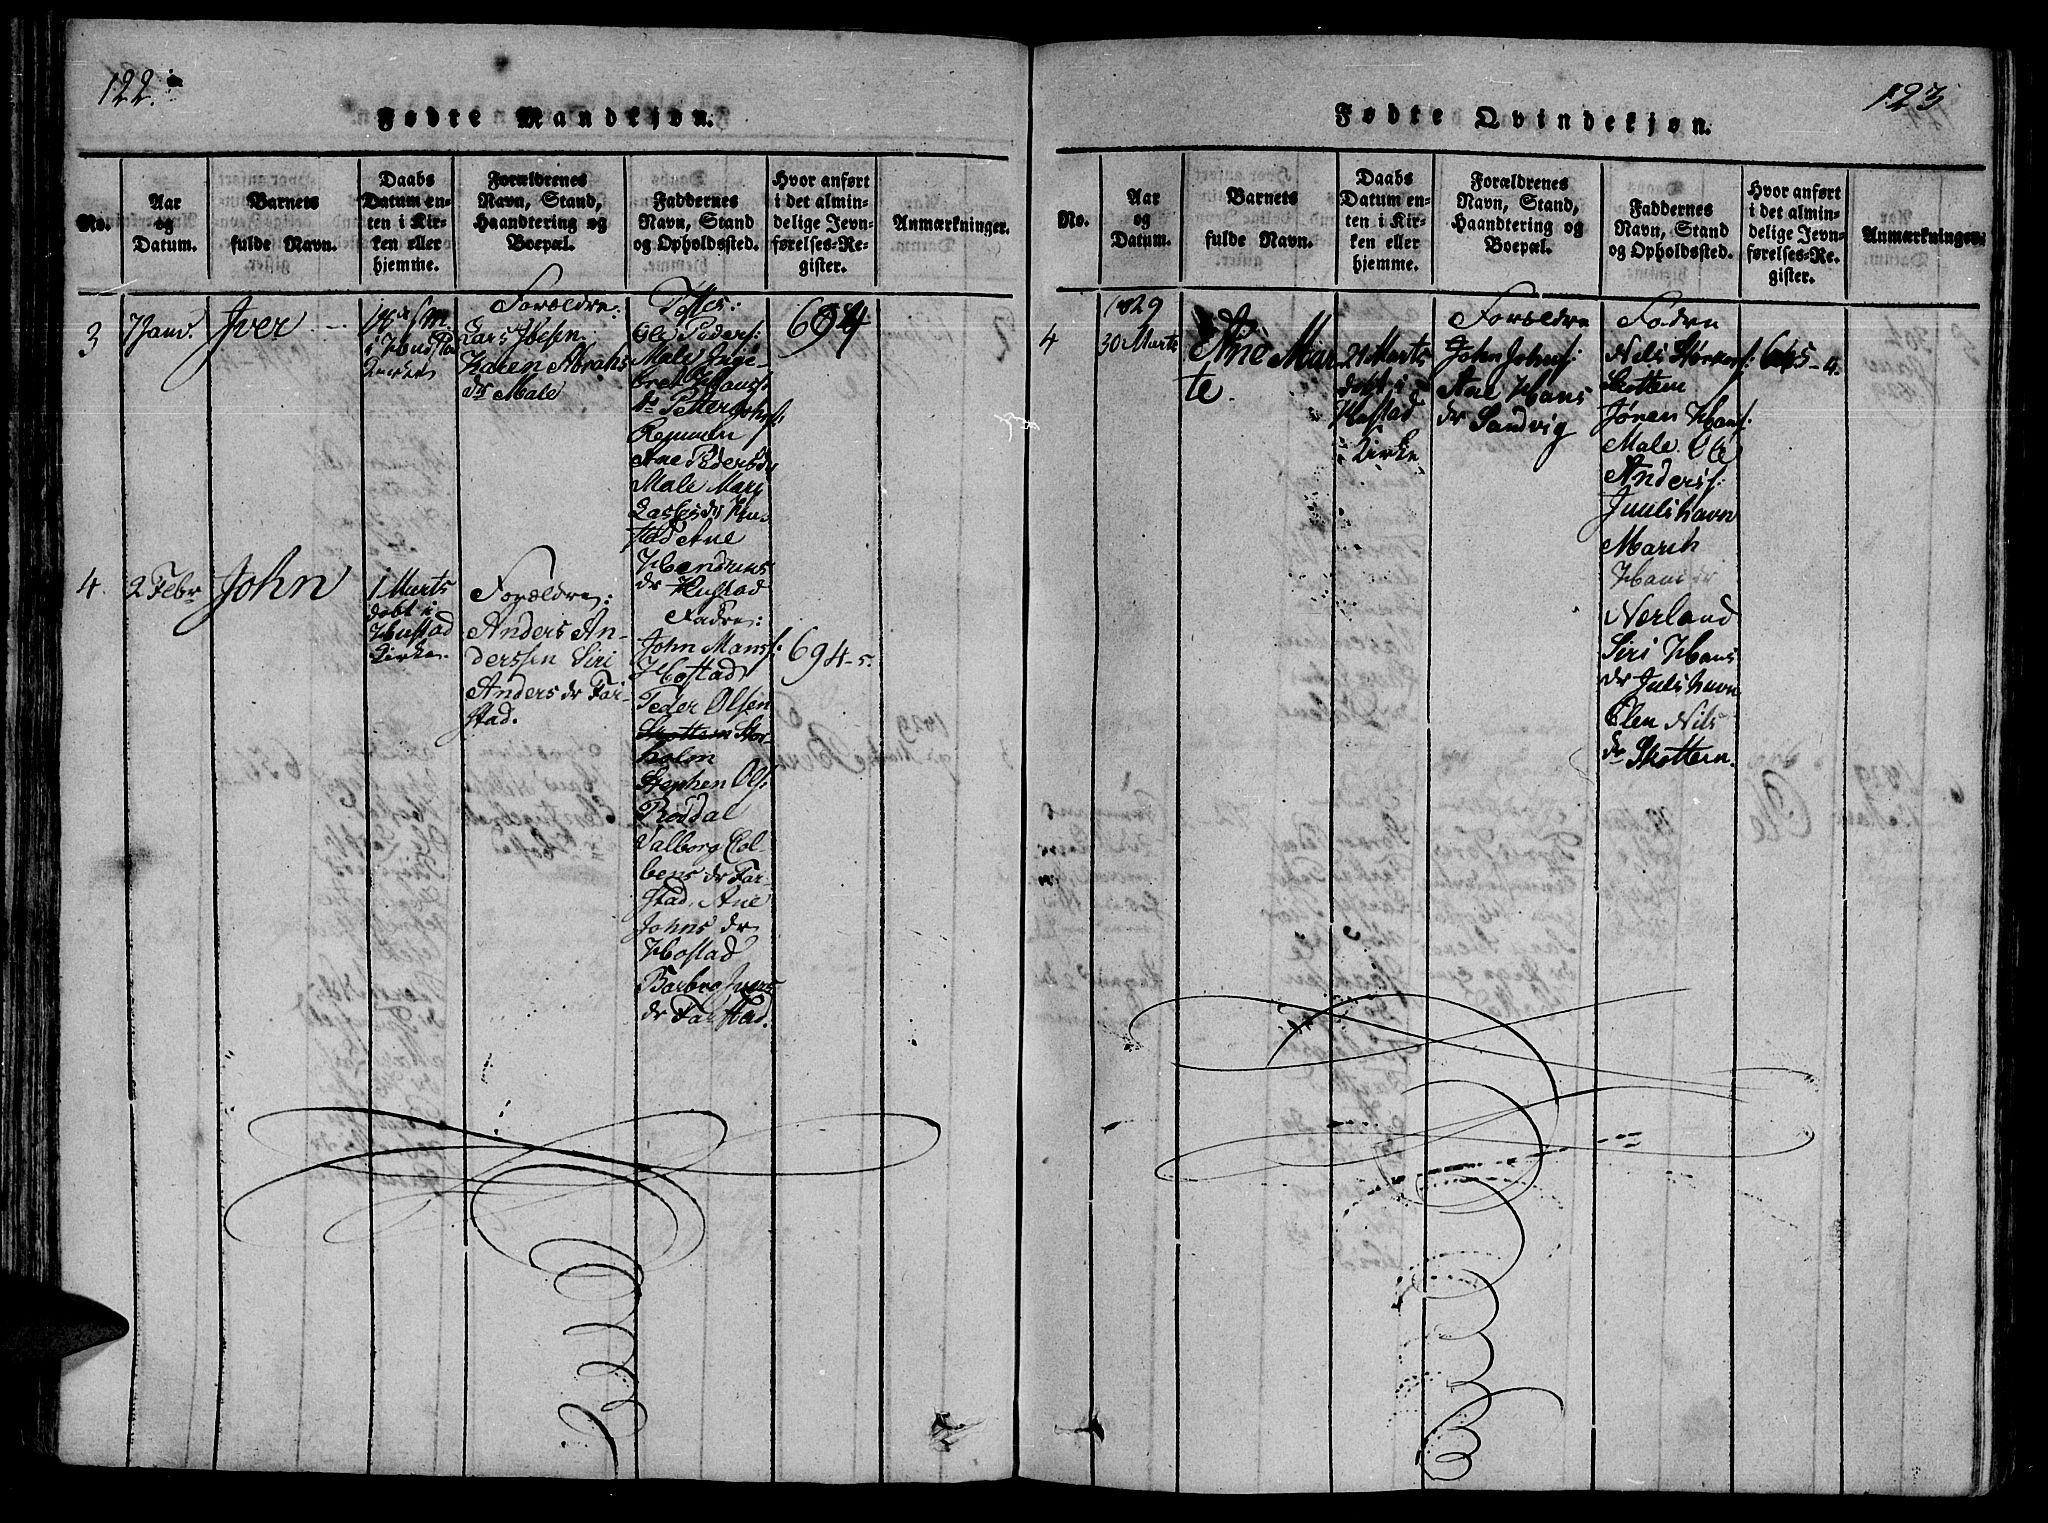 122.
Fødte Mandkjøn.
No.
Aar
og
Datum.
Barnets
fulde Navn.
Daabs
Datum en-
ten i Kir-
ken eller
hjemme.
Forældrenes
Navn, Stand,
Haandtering og
Boepæl.
Faddernes
Navn, Stand
og Opholdssted.
Hvor anført
i det almin-
delige Jevn-
førelses-Re-
gister.
Anmarkninger.
3
Janv.
Iver
i Hustad
Kirke
Forældre:
Lars
Karen Abrahs
dr Male
Ole Peders:
Male Enge-
bret Hanss:
Petter Johns:
Ane Pedersdr
Male Mari
Hu-
stad Ane
dr Hustad
694
4.
2 Febr
John
1 Marts
døbt i
Hustad
Kirke.
Forældre:
Anders An-
derssen Siri
Anders dr Far-
stad.
Fadre:
John Hanss:
Hostad
Peder Olsen
Skottem Stor-
holm
Stephen Ols:
Roddal
Valborg Col-
bens dr Far-
stad. Ane
Johns dr
Hostad
Barbro Ivers
dr Farstad.
694-5.
123
Fødte Qvindekjøn.
No.
Aar
og
Datum.
Barnets
fulde Navn.
Daabs
Datum en-
ten i Kir-
ken eller
hjemme.
Forældrenes
Navn, Stand,
Haandtering og
Boepæl.
Faddernes
Navn, Stand
og Opholdssted.
Hvor anført
i det almin-
delige Jevn-
førelses-Re-
gister.
Anmarkninger.
4
1829
30 Marts
Ane Mar-
te.
21 Marts
døbt i
Hustad
Kirke
Forældre
John Johns:
Ane Hans
dr Sandvig
Fadre
Nils Størkers:
Skottem
Jøren Hans:
Male. Ole
Anders:
Juulshavn
Marih
Hans dr
Nerland
Siri Hans
dr Julshavn
Elen Nils
dr Skottem.
665-4.